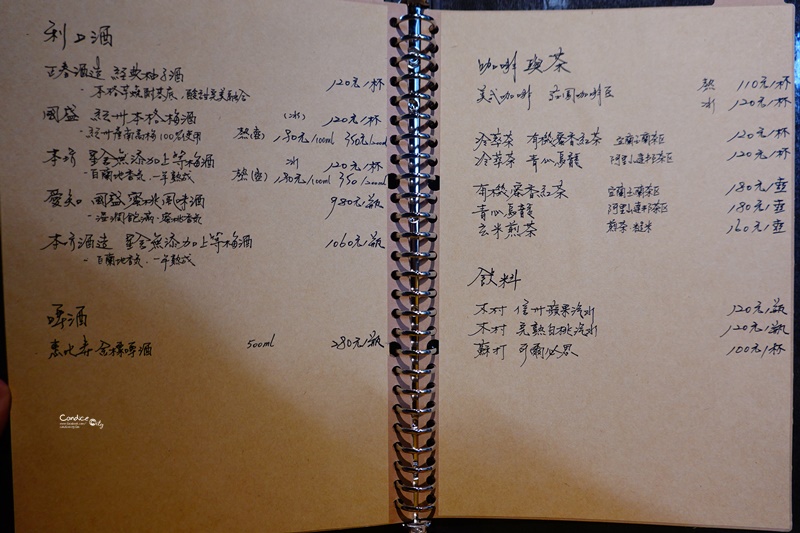 利口酒
百春酒造 經典柚子酒 120元/杯
國盛 紀州本格梅酒 (冰) 120元/杯
- 紀州產南高梅100%使用 熱(壺) 130元/100ml 250/200ml
本坊 星舍無添加上等梅酒 冰 120元/杯
- 白蘭地香氣、一年熟成 熱(壺) 130元/100ml 250/200ml
愛知 國盛 蜜桃風味酒 980元/瓶
- 濃潤飽滿、蜜桃香氣
本坊酒造 星舍無添加上等梅酒 1060元/瓶
- 白蘭地香氣、一年熟成
啤酒
惠比壽 金標啤酒 500ml 280元/瓶
Candice City
咖啡與茶
美式咖啡 莊園咖啡豆 熱 110元/杯
冰 120元/杯
冷萃茶 有機蜜香紅茶 宜蘭玉蘭茶區 120元/杯
冷萃茶 青心烏龍 阿里山達邦茶區 120元/杯
有機蜜香紅茶 宜蘭玉蘭茶區 180元/壺
青心烏龍 阿里山達邦茶區 180元/壺
玄米煎茶 煎茶 糙米 160元/壺
飲料
木村 信州蘋果汽水 120元/瓶
木村 完熟白桃汽水 120元/瓶
蘇打 可爾必思 100元/杯